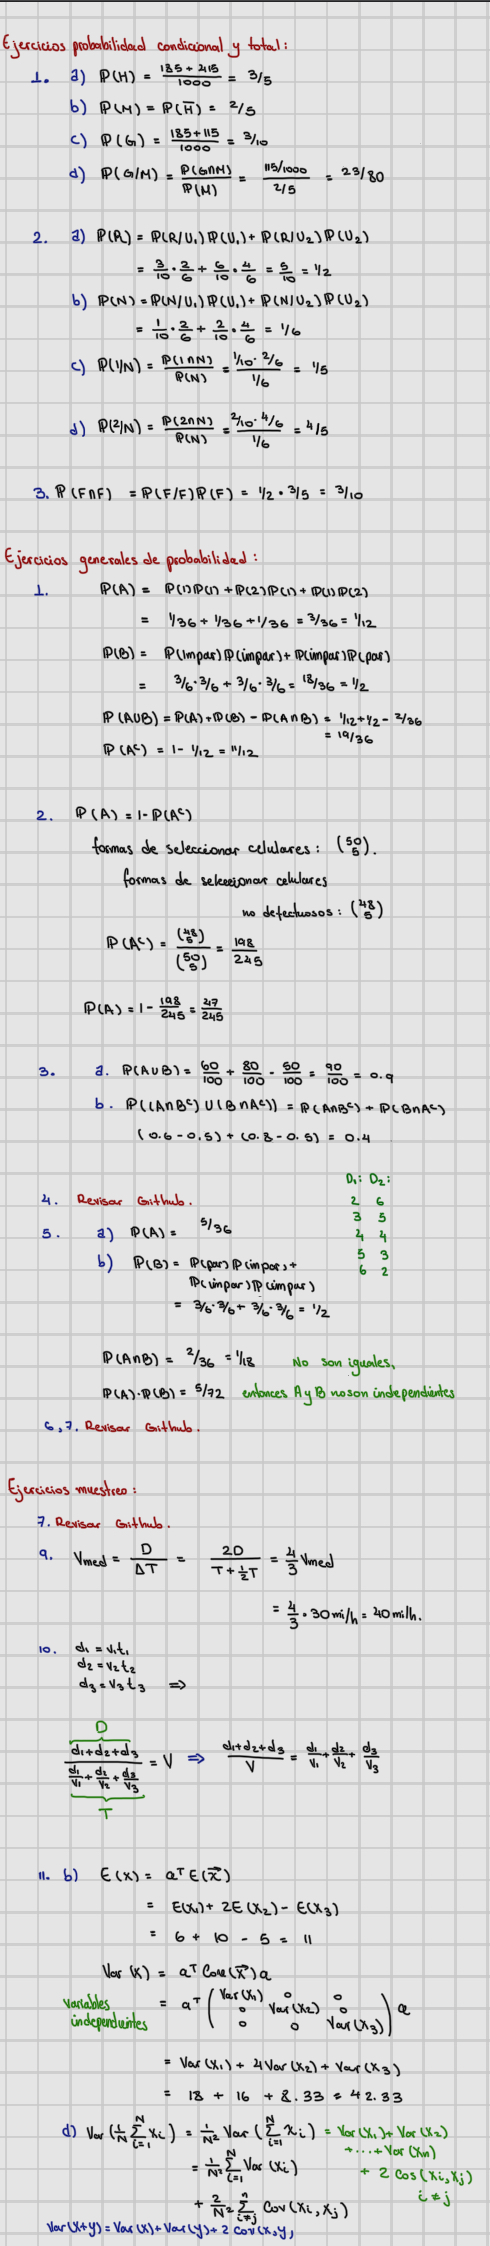 Ejercicios probabilidad condicional y total:
1. a) P(H) = (185+415)/1000 = 3/5
b) P(M) = P(H̅) = 2/5
c) P(G) = (185+115)/1000 = 3/10
d) P(G/M) = P(G∩M)/P(M) = (115/1000)/(2/5) = 23/80
2. a) P(R) = P(R/U₁)P(U₁) + P(R/U₂)P(U₂)
= 3/10 · 2/6 + 6/10 · 4/6 = 5/10 = 1/2
b) P(N) = P(N/U₁)P(U₁) + P(N/U₂)P(U₂)
= 1/10 · 2/6 + 2/10 · 4/6 = 1/6
c) P(1/N) = P(1∩N)/P(N) = (1/10 · 2/6)/(1/6) = 1/5
d) P(2/N) = P(2∩N)/P(N) = (2/10 · 4/6)/(1/6) = 4/5
3. P(F∩F) = P(F/F)P(F) = 1/2 · 3/5 = 3/10
Ejercicios generales de probabilidad:
1. P(A) = P(1)P(1) + P(2)P(1) + P(1)P(2)
= 1/36 + 1/36 + 1/36 = 3/36 = 1/12
P(B) = P(impar)P(impar) + P(impar)P(par)
= 3/6 · 3/6 + 3/6 · 3/6 = 18/36 = 1/2
P(A∪B) = P(A) + P(B) - P(A∩B) = 1/12 + 1/2 - 2/36
= 19/36
P(Aᶜ) = 1 - 1/12 = 11/12
2. P(A) = 1 - P(Aᶜ)
formas de seleccionar celulares: (50 5).
formas de seleccionar celulares
no defectuosos: (48 5)
P(Aᶜ) = (48 5)/(50 5) = 198/245
P(A) = 1 - 198/245 = 47/245
3. a. P(A∪B) = 60/100 + 80/100 - 50/100 = 90/100 = 0.9
b. P((A∩Bᶜ)∪(B∩Aᶜ)) = P(A∩Bᶜ) + P(B∩Aᶜ)
(0.6 - 0.5) + (0.8 - 0.5) = 0.4
D₁: D₂:
2 6
3 5
4 4
5 3
6 2
4. Revisar Github.
5. a) P(A) = 5/36
b) P(B) = P(par)P(impar) +
P(impar)P(impar)
= 3/6 · 3/6 + 3/6 · 3/6 = 1/2
P(A∩B) = 2/36 = 1/18 No son iguales,
P(A)·P(B) = 5/72 entonces A y B no son independientes
6, 7. Revisar Github.
Ejercicios muestreo:
7. Revisar Github.
9. Vmed = D/ΔT = 2D/(T + 1/2 T) = 4/3 Vmed
= 4/3 · 30 mi/h = 40 mi/h.
10. d₁ = v₁t₁
d₂ = v₂t₂
d₃ = v₃t₃ ⇒
D
(d₁+d₂+d₃)/(d₁/v₁ + d₂/v₂ + d₃/v₃) = V ⇒ (d₁+d₂+d₃)/V = d₁/v₁ + d₂/v₂ + d₃/v₃
T
11. b) E(X) = aᵀE(x⃗)
= E(X₁) + 2E(X₂) - E(X₃)
= 6 + 10 - 5 = 11
Var(X) = aᵀCov(x⃗)a
variables independientes = aᵀ (Var(X₁) 0 0
0 Var(X₂) 0
0 0 Var(X₃)) a
= Var(X₁) + 4Var(X₂) + Var(X₃)
= 18 + 16 + 8.33 = 42.33
d) Var(1/N Σᵢ₌₁ᴺ xᵢ) = 1/N² Var(Σᵢ₌₁ᴺ xᵢ) = Var(X₁) + Var(X₂)
+ ... + Var(Xn)
= 1/N² Σᵢ₌₁ᴺ Var(xᵢ) + 2 Cos(xᵢ, xⱼ)
i ≠ j
+ 2/N² Σᵢ≠ⱼⁿ Cov(xᵢ, xⱼ)
Var(X+Y) = Var(X) + Var(Y) + 2 Cov(X, Y,